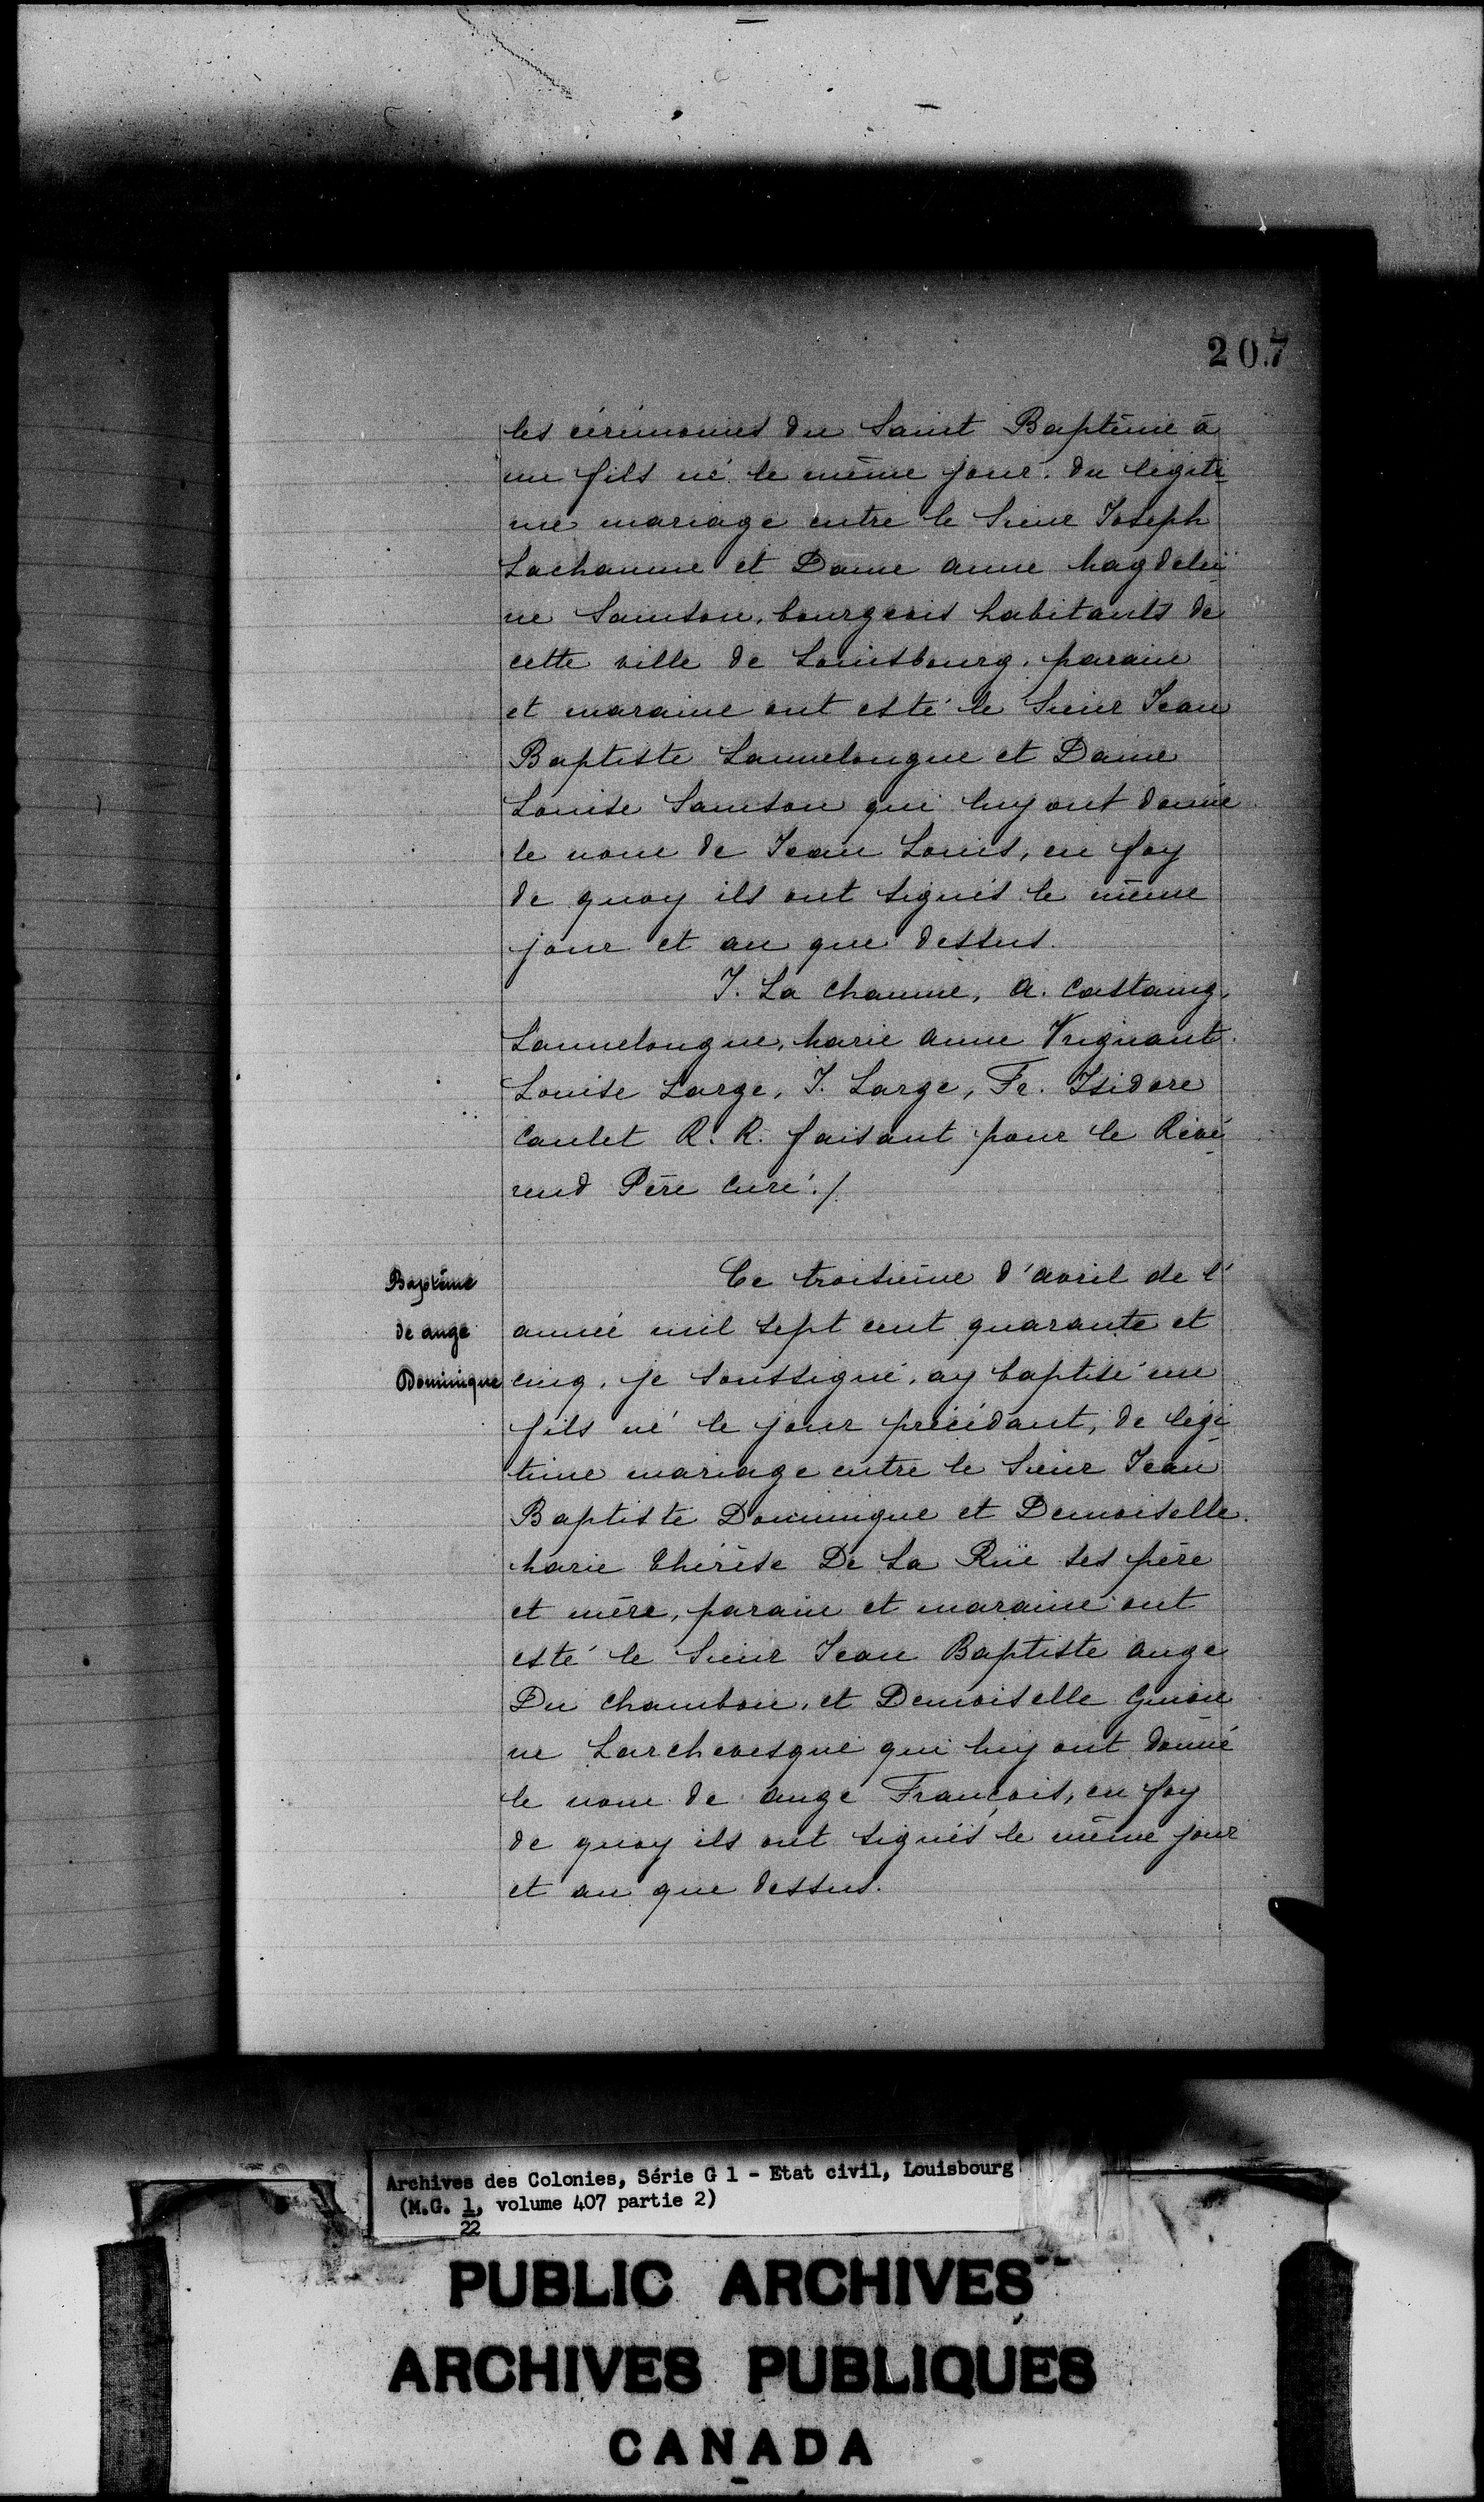 207
les cérémonies du Saint Baptême à
un fils né le même jour. du legiti
me mariage entre le Sieur Joseph
Lachaume et Dame anne magdelei
ne Samson, bourgeois habitants de
cette ville de Louisbourg, parain
et maraine ont esté le Sieur Jean
Baptiste Lannelongue et Dame
Louise Samson qui luy ont donné
le nom de Jean Louis, en foy
de quoy ils ont signés le même
jour et an que dessus.
J. La chaume, a. Castaing,
Lannelongue, marie anne Vrignant
Louise Large, J. Large, Fr. Isidore
Caulet R. R. faisant pour le Révé
rend Père curé./.
Baptême
de ange
Dominique
Ce troisième d'avril de l'
année mil sept cent quarante et
cinq, je soussigné, ay baptisé un
fils né le jour précédant, de légi
time mariage entre le Sieur Jean
Baptiste Dominique et Demoiselle
marie thérèse De La Rüe ses père
et mère, parain et maraine ont
esté le Sieur Jean Baptiste ange
Du chambon, et Demoiselle
ne Larchevesque qui luy ont donné
le nom de ange François, en foy
de quoy ils ont signés le même jour
et an que dessus.
Archives des Colonies, Série G 1 - Etat civil, Louisbourg
(M.G. 1, volume 407 partie 2)
22
PUBLIC ARCHIVES
ARCHIVES PUBLIQUES
CANADA